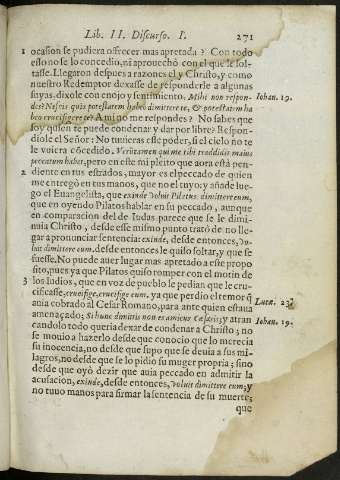 Lib. II. Discurso. I. 271
1 ocasion se pudiera offrecer mas apretada? Con todo
esso no se lo concedio, ni aprouechò con el que le sol-
tasse. Llegaron despues a razones el y Christo, y como
nuestro Redemptor dexasse de responderle a algunas
suyas, dixole con enojo y sentimiento, Mihi non respon-
des? Nescis quis potestatem habeo dimittere te, & potestatem ha
beo crucifigere te? A mi no me respondes? No sabes que
soy quien te puede condenar y dar por libre? Respon-
diole el Señor: No tuuieras esse poder, si el cielo no te
le vuiera cõcedido. Verũtamen qui me tibi tradidit maius
peccatum habet, pero en este mi pleito que aora està pen-
2 diente en tus estrados, mayor es el peccado de quien
me entregò en tus manos, que no el tuyo: y añade lue-
go el Euangelista, que exinde voluit Pilatus dimittere eum,
que en oyendo Pilatos hablar en su peccado, aunque
en comparacion del de Iudas parece que se le dimi-
nuia Christo, desde esse mismo punto tratò de no lle-
gar a pronunciar sentencia: exinde, desde entonces, vo-
luit dimittere eum, desde entonces le quiso soltar, y que se
fuesse. No puede auer lugar mas apretado a este propo
sito, pues ya que Pilatos quiso romper con el motin de
3 los Iudios, que en voz de pueblo le pedian que le cru-
cificasse, crucifige, crucifige eum, ya que perdio el temor q̃
auia cobrado al Cesar Romano, para ante quien estaua
amenaçado; Si hunc dimittis non es amicus Cæsaris, y atran
candolo todo queria dexar de condenar a Christo; no
se mouio a hazerlo desde que conocio que lo merecia
su inocencia, no desde que supo que se deuia a sus mi-
lagros, no desde que se lo pidio su muger propria; sino
desde que oyó dezir que auia peccado en admitir la
acusacion, exinde, desde entonces, voluit dimittere eum; y
no tuuo manos para firmar la sentencia de su muerte;
que
Iohan. 19.
Lucæ. 23.
Iohan. 19.